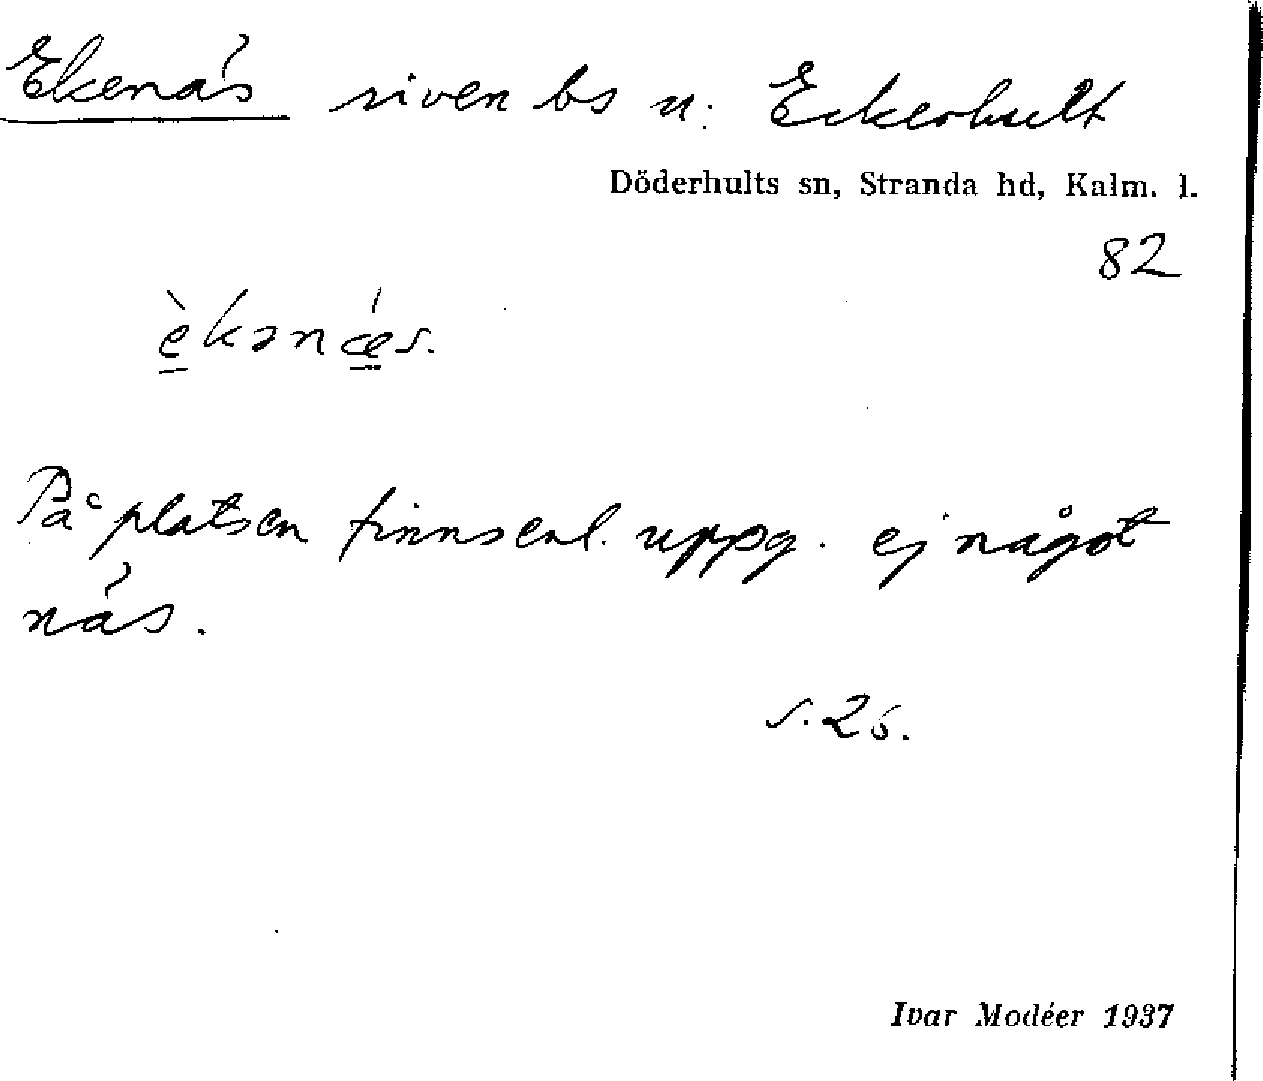 Ekenäs riven bs u. Eckerhult
Döderhults sn, Stranda hd, Kalm. l.
82
è̱kənǽ̱s.
På platsen finns enl. uppg. ej något
näs.
s. 26.
Ivar Modéer 1937